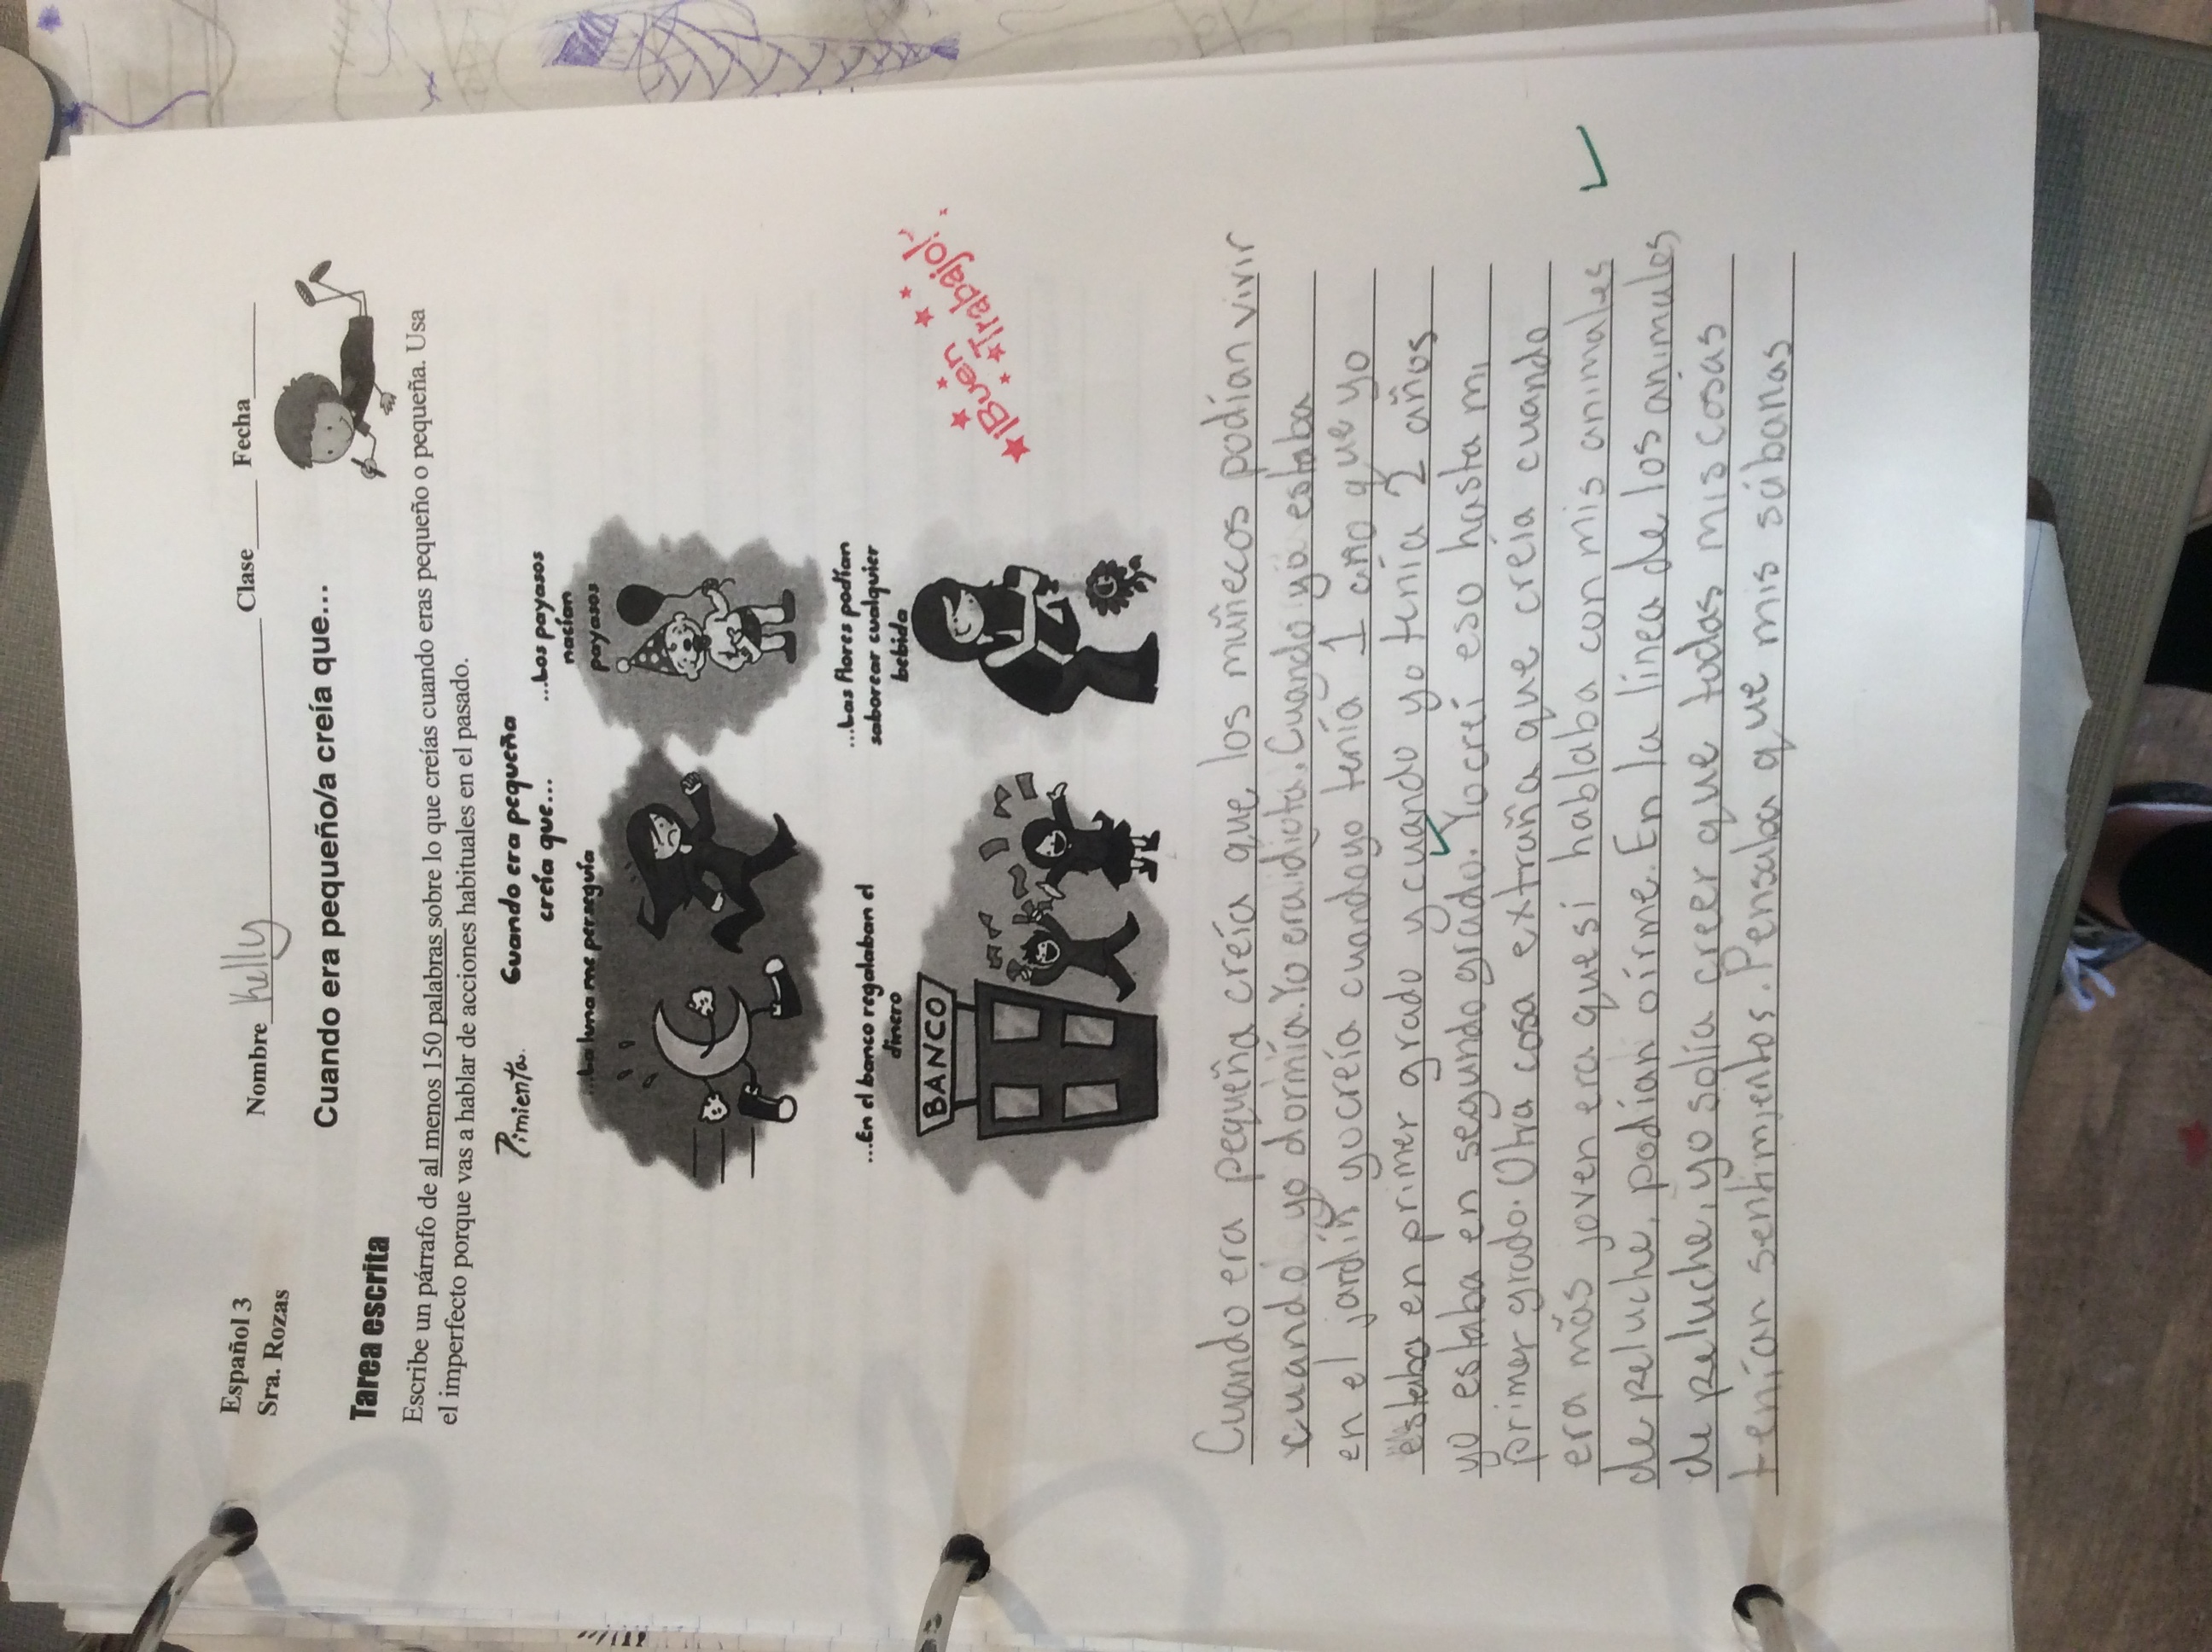 Español 3
Sra. Rozas
Nombre Kelly Clase Fecha
Cuando era pequeño/a creía que...
Tarea escrita
Escribe un párrafo de al menos 150 palabras sobre lo que creías cuando eras pequeño o pequeña. Usa
el imperfecto porque vas a hablar de acciones habituales en el pasado.
Pimienta.
Cuando era pequeña
creía que...
...La luna me perseguía
...Los payasos
nacían
payasos
...En el banco regalaban el
dinero
BANCO
...Las flores podían
saborear cualquier
bebida
¡Buen
Trabajo!
Cuando era pequeña creía que los muñecos podían vivir
cuando yo dormía. Yo era idiota. Cuando yo estaba
en el jardín yo creía cuando yo tenía 1 año que yo
estaba en primer grado y cuando yo tenía 2 años
yo estaba en segundo grado. Yo creí eso hasta mi
primer grado. Otra cosa extraña que creía cuando
era más joven era que si hablaba con mis animales
de peluche, podían oírme. En la línea de los animales
de peluche, yo solía creer que todas mis cosas
tenían sentimientos. Pensaba que mis sábanas